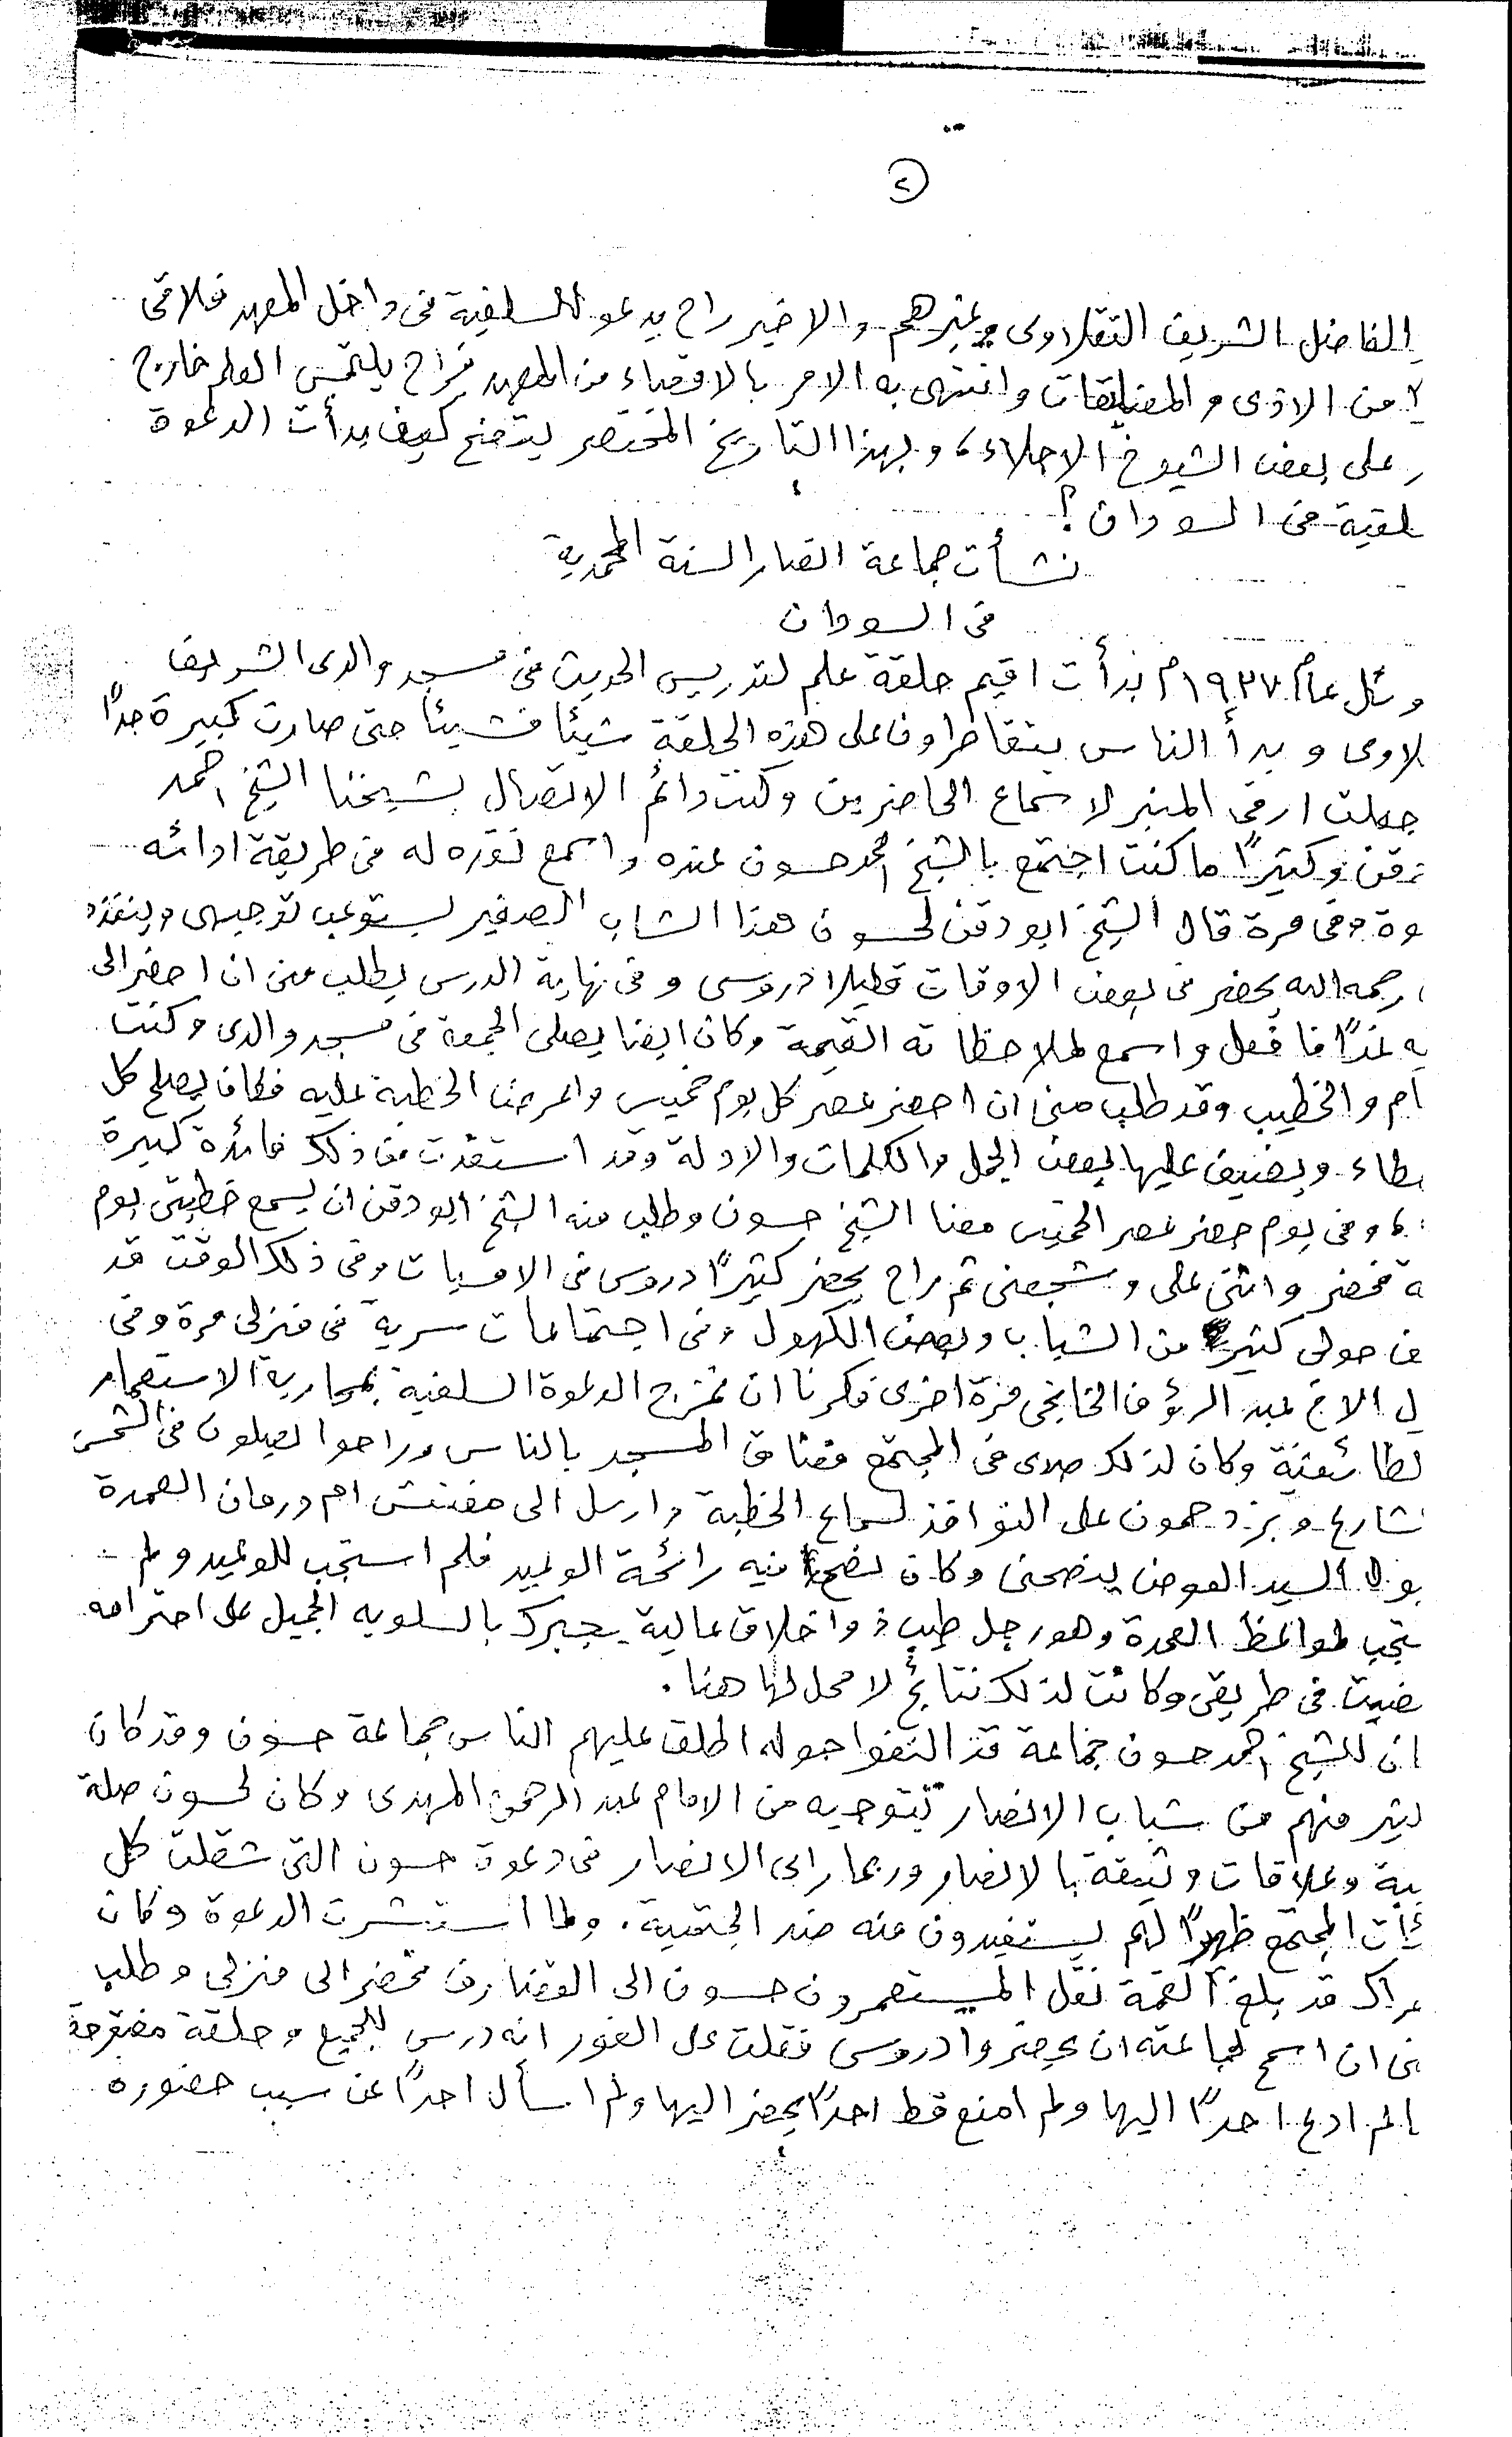 ٢
الفاضل الشريف التقلاوى وغيرهم والاخير راح يدعو للسلفية فى داخل المعهد فلاقى
من الاذى والمضايقات وانتهى به الامر بالاقصاء من المعهد فراح يلتمس العلم خارج
على بعض الشيوخ الاجلاء، وبهذا التاريخ المختصر يتضح كيف بدأت الدعوة
لفية فى السودان؟
نشأت جماعة انصار السنة المحمدية
فى السودان
ئل عام ١٩٣٧م بدأت اقيم حلقة علم لتدريس الحديث فى مسجد والدى الشريف
لاوى وبدأ الناس يتقاطرون على هذه الحلقة شيئا فشيئا حتى صارت كبيرة جداً
جعلت ارقى المنبر لاسماع الحاضرين وكنت دائم الاتصال بشيخنا الشيخ احمد
دقن وكثيراً ما كنت اجتمع بالشيخ احمد حسون عنده واسمع نقده له فى طريقة ادائه
وة وفى مرة قال الشيخ ابو دقن لحسون هذا الشاب الصغير يستوعب توجيهى وينفذه
رحمه الله يحضر فى بعض الاوقات قليلا دروسى وفى نهاية الدرس يطلب منى ان احضر الى
غداً فافعل واسمع لملاحظاته القيمة وكان ايضا يصلى الجمعة فى مسجد والدى وكنت
ام والخطيب وقد طلب منى ان احضر عصر كل يوم خميس واعرض الخطبة عليه فكان يصلح كل
طاء ويضيف عليها بعض الجمل والكلمات والادلة وقد استفدت من ذلك فائدة كبيرة
، وفى يوم حضر عصر الخميس معنا الشيخ حسون وطلب منه الشيخ ابو دقن ان يسمع خطبتى يوم
ة فحضر واثنى على وشجعنى ثم راح يحضر كثيراً دروسى فى الامسيات وفى ذلك الوقت قد
ف حولى كثير من الشباب وبعض الكهول وفى اجتماعات سرية فى منزلى مرة وفى
ل الاخ عبد الرؤوف الخانجى مرة اخرى فكرنا ان نمزج الدعوة السلفية بمحاربة الاستعمار
لطائفية وكان لذلك صدى فى المجتمع فضاق المسجد بالناس وراحوا يصلون فى الشمس
شارع ويزدحمون على النوافذ لسماع الخطبة وارسل الى مفتش ام درمان العمدة
السيد العوض ينصحنى وكان نصحا فيه رائحة الوعيد فلم استجب للوعيد ولم
تجب لمواعظ العمدة وهو رجل طيب ذو اخلاق عالية يجبرك باسلوبه الجميل على احترامه
ضيت فى طريقى وكانت لذلك نتائج لا محل لها هنا.
ان للشيخ احمد حسون جماعة قد التفوا حوله اطلق عليهم الناس جماعة حسون وقد كان
ثير منهم من شباب الانصار بتوجيه من الامام عبد الرحمن المهدى وكان لحسون صلة
بية وعلاقات وثيقة بالانصار وربما راى الانصار فى دعوة حسون التى شغلت كل
ئات المجتمع ظهراً لهم يستفيدون منه ضد الختمية. ولما استشرت الدعوة وكان
راك قد بلغ القمة نقل المستعمرون حسون الى القضارف فحضر الى منزلى وطلب
نى ان اسمح لجماعته ان يحضروا دروسى فقلت على الفور انه درس للجميع وحلقة مفتوحة
لم ادع احداً اليها ولم امنع قط احداً يحضر اليها ولم اسأل احداً عن سبب حضوره